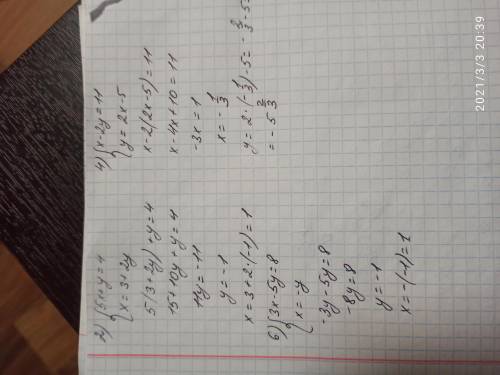 2) { 5x+y=4
x = 3+2y
5(3+2y)+y=4
15+10y+y=4
11y=-11
y=-1
x=3+2·(-1)=1
6) { 3x-5y=8
x=-y
-3y-5y=8
-8y=8
y=-1
x=-(-1)=1
4) { x-2y=11
y=2x-5
x-2(2x-5)=11
x-4x+10=11
-3x=1
x=-1/3
y=2·(-1/3)-5=-2/3-5=
=-5 2/3
2021/3/3 20:39